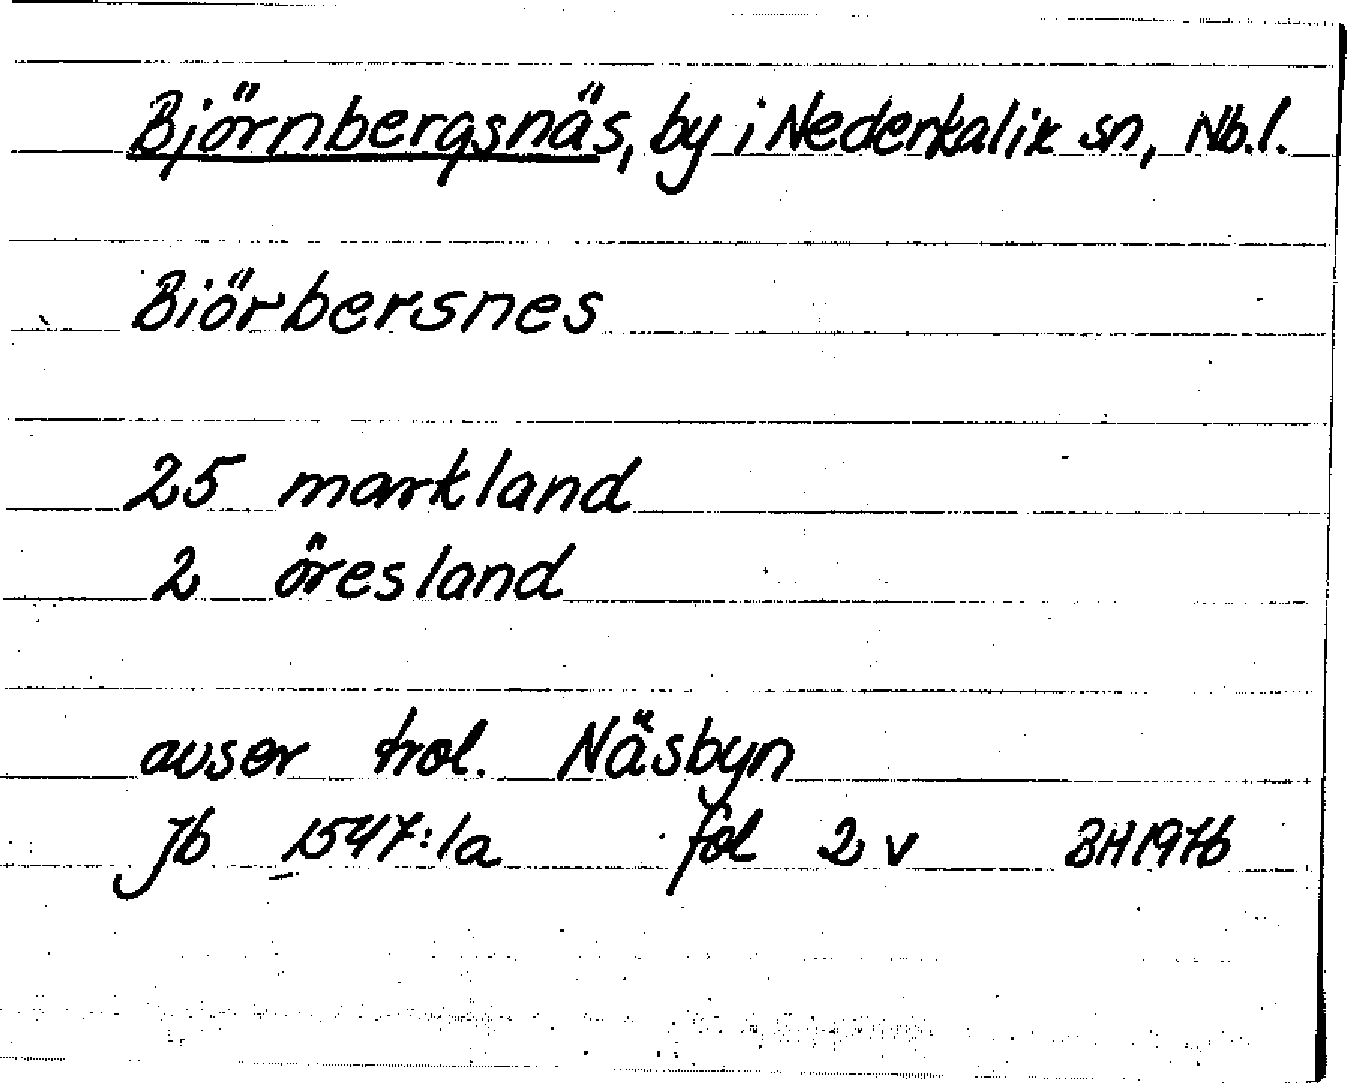 Björnbergsnäs, by i Nederkalix sn, Nb.l.
Biörbersnes
25 markland
2 öresland
avser trol. Näsbyn
Jb 1547:1a fol 2 v BH1976